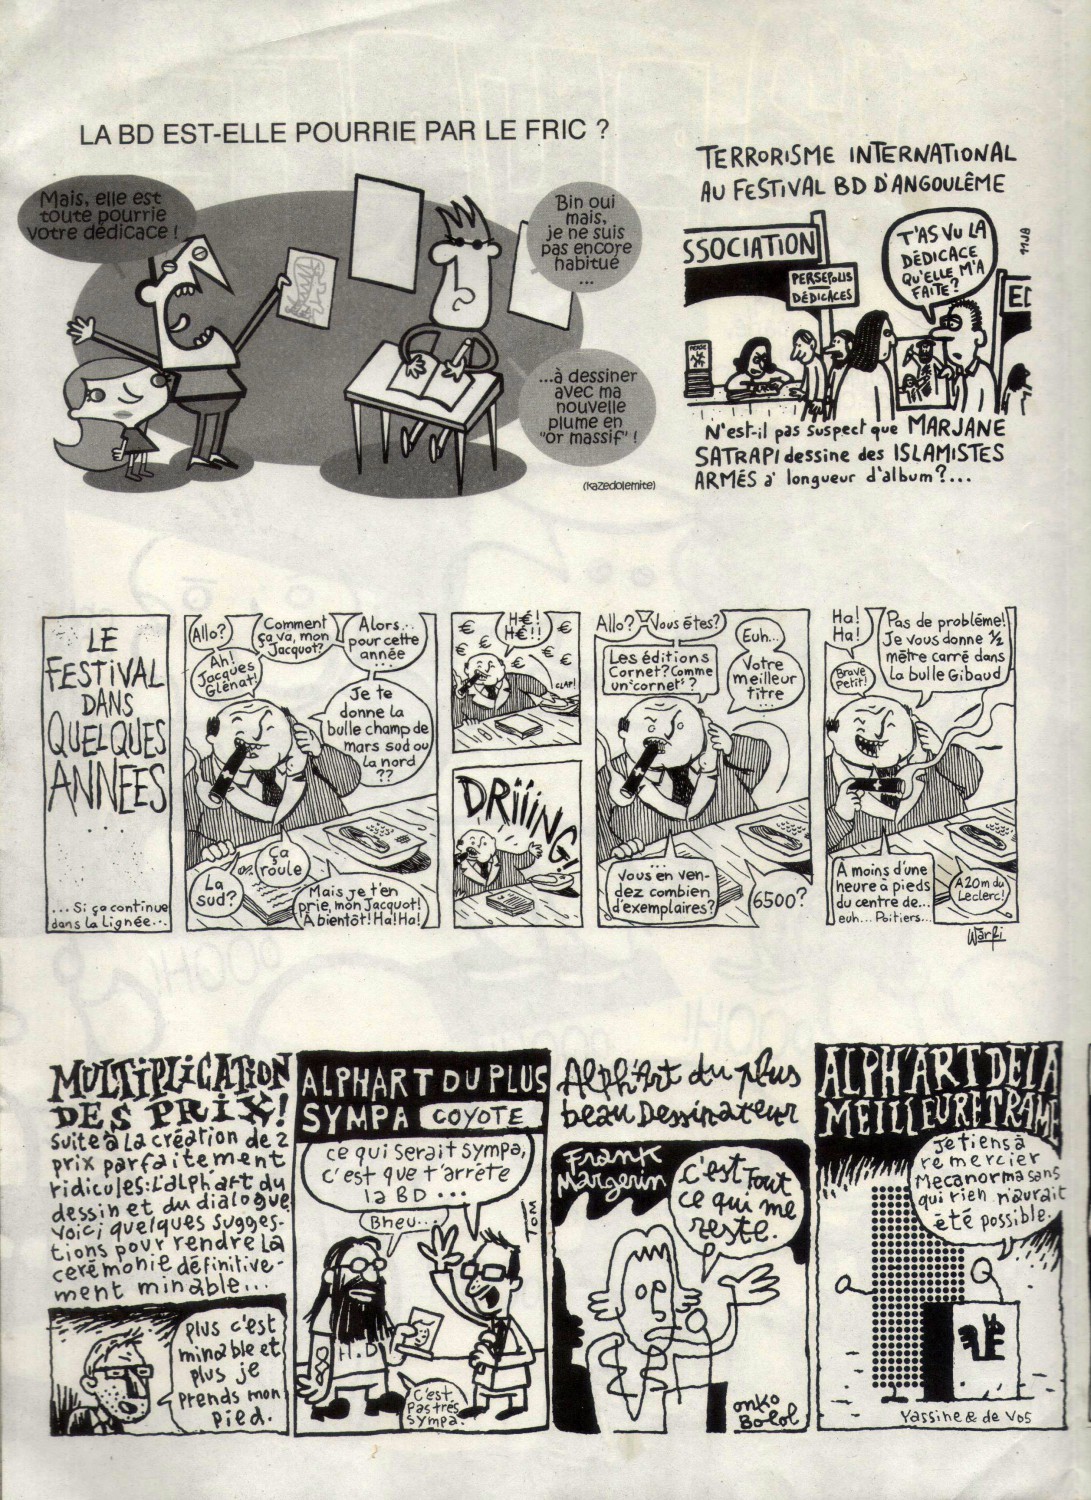 LA BD EST-ELLE POURRIE PAR LE FRIC ?
Mais, elle est
toute pourrie
votre dédicace !
Bin oui
mais,
je ne suis
pas encore
habitué
...
...à dessiner
avec ma
nouvelle
plume en
"or massif" !
(kazedolemite)
TERRORISME INTERNATIONAL
AU FESTIVAL BD D'ANGOULÊME
SSOCIATION
PERSEPOLIS
DÉDICACES
T'AS VU LA
DÉDICACE
QU'ELLE M'A
FAITE?
ED
N'est-il pas suspect que MARJANE
SATRAPI dessine des ISLAMISTES
ARMÉS à longueur d'album?...
LE
FESTIVAL
DANS
QUELQUES
ANNEES
...
...Si ça continue
dans la Lignée...
Allo?
Ah!
Jacques
Glénat!
Comment
ça va, mon
Jacquot?
Alors...
pour cette
année
...
Je te
donne la
bulle champ de
mars sud ou
la nord
??
La
sud?
Ça
roule
Mais je t'en
prie, mon Jacquot!
À bientôt! Ha! Ha!
€ € € € € € €
H€!
H€!!
CLAP!
DRiiiNG!
Allo?
Vous êtes?
Les éditions
Cornet? Comme
un "cornet"?
Euh...
Votre
meilleur
titre
...
Vous en ven-
dez combien
d'exemplaires?
6500?
Ha!
Ha!
Brave
Petit!
Pas de problème!
Je vous donne ½
mètre carré dans
la bulle Gibaud
À moins d'une
heure à pieds
du centre de...
euh... Poitiers...
A 20m du
Leclerc!
Warfi
MULTIPLICATION
DES PRIX!
suite à la création de 2
prix parfaitement
ridicules: L'alph'art du
dessin et du dialogue
Voici quelques sugges-
tions pour rendre la
cérémonie définitive-
ment minable...
plus c'est
minable et
plus je
prends mon
pied.
ALPHART DU PLUS
SYMPA COYOTE
ce qui serait sympa,
c'est que t'arrête
la BD ...
Bheu...
TOMI
H.D
C'est
Pas très
Sympa.
Alph'Art du plus
beau Dessinateur
Frank
Margerin
C'est Tout
ce qui me
reste.
onko
Bolol
ALPH'ART DE LA
MEILLEURE TRAME
Je tiens à
remercier
Mecanorma sans
qui rien n'aurait
été possible.
Yassine & de Vos